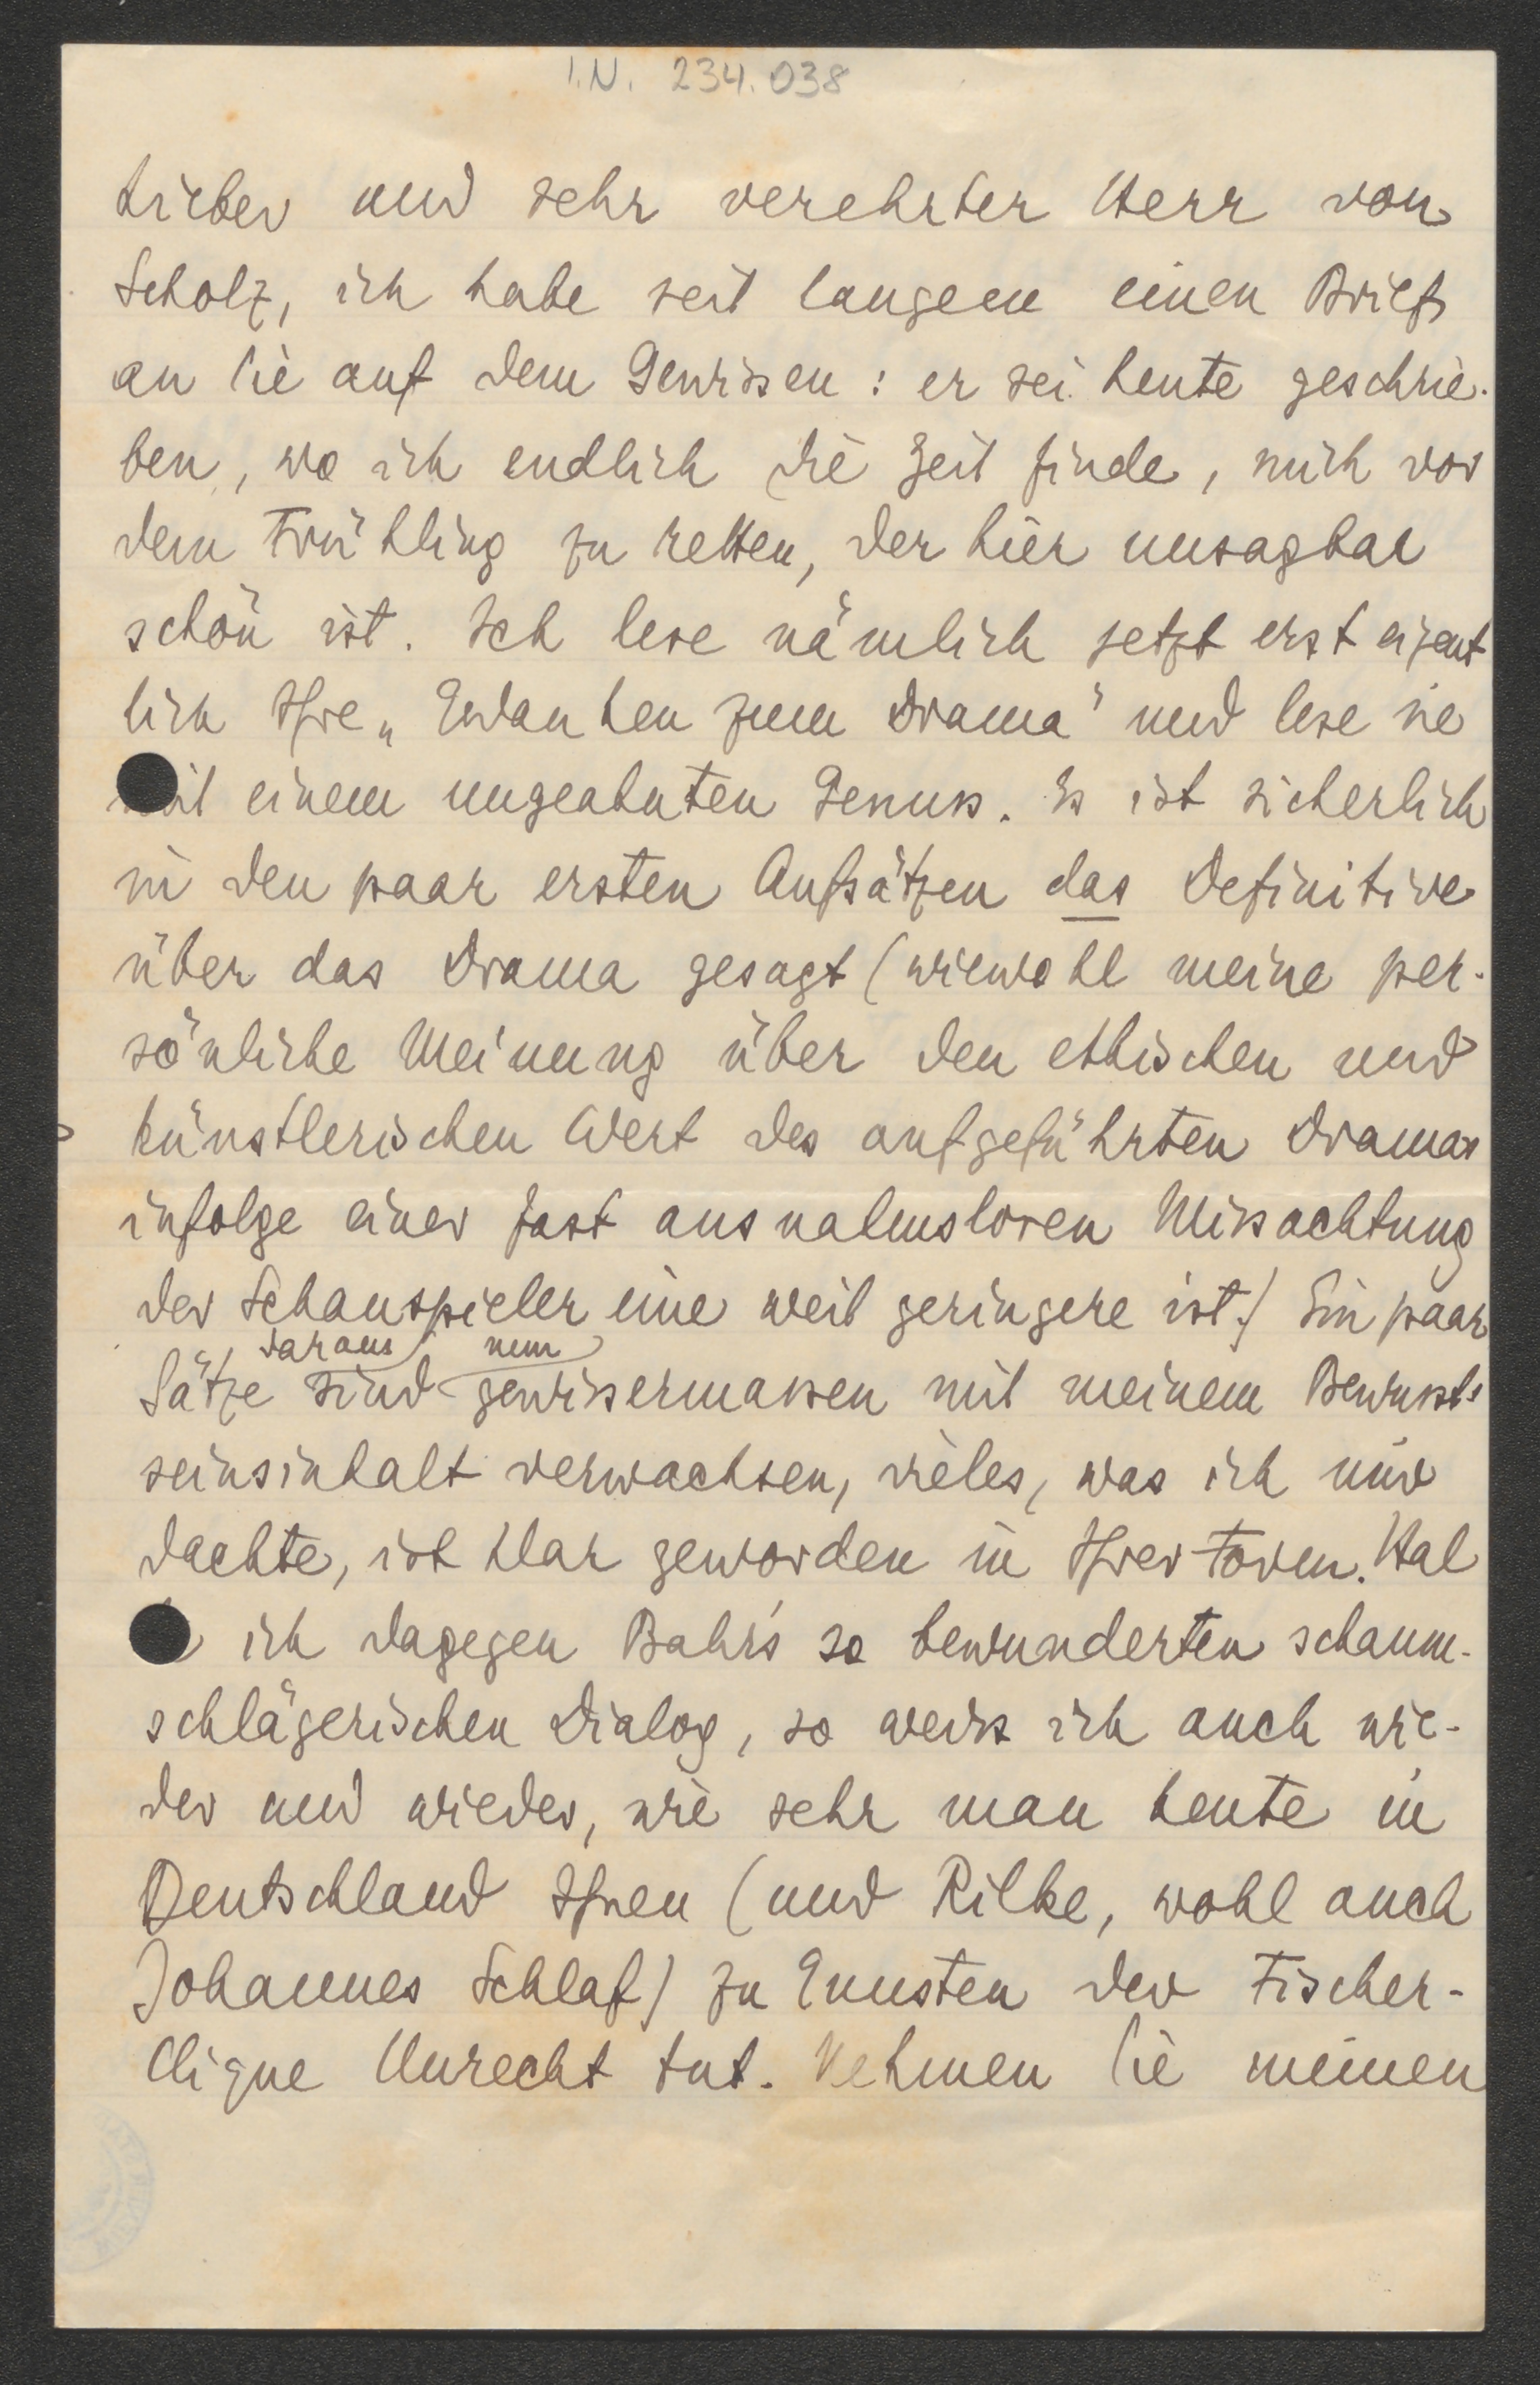 I.N. 234.038
Lieber und sehr verehrter Herr von
Scholz, ich habe seit langem einen Brief
an Sie auf dem Gewissen: er sei heute geschrie-
ben, wo ich endlich die Zeit finde, mich vor
dem Frühling zu retten, der hier unsagbar
schön ist. Ich lese nämlich jetzt erst eigent
lich Ihre „Gedanken zum Drama" und lese sie
mit einem ungeahnten Genuss. Es ist sicherlich
in den paar ersten Aufsätzen das Definitive
über das Drama gesagt (wiewohl meine per-
sönliche Meinung über den ethischen und
künstlerischen Wert des aufgeführten Dramas
infolge einer fast ausnahmslosen Missachtung
der Schauspieler eine weit geringere ist.) Ein paar
daraus nun
Sätze sind gewissermassen mit meinem Bewusst-
seinsinhalt verwachsen, vieles, was ich mir
dachte, ist klar geworden in Ihrer Form. Hal
te ich dagegen Bahr's so bewunderten schaum-
schlägerischen Dialog, so weiss ich auch wie-
der und wieder, wie sehr man heute in
Deutschland Ihnen (und Rilke, wohl auch
Johannes Schlaf) zu Gunsten der Fischer-
Clique Unrecht tut. Nehmen Sie meinen